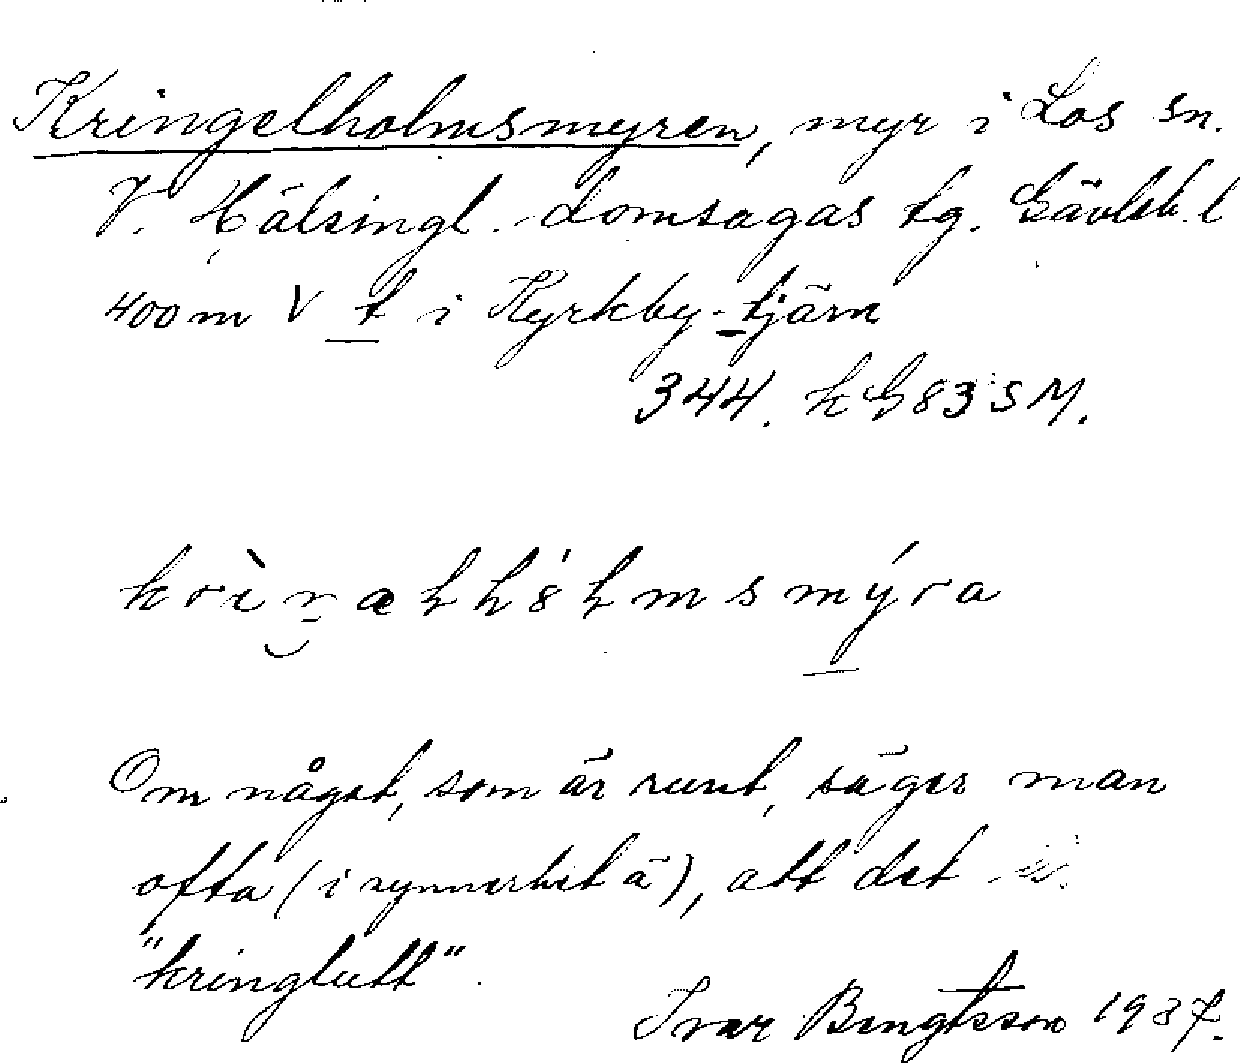 Kringelholmsmyren, myr i Los sn.
V. Hälsingl. domsagas tg. Gävleb. l
400 m V t i Kyrkby-tjärn
344. k G 83 S M.
Om något, som är runt, säger man
ofta (i synnerhet ä), att det är
"kringlutt".
Ivar Bengtsson 1987.